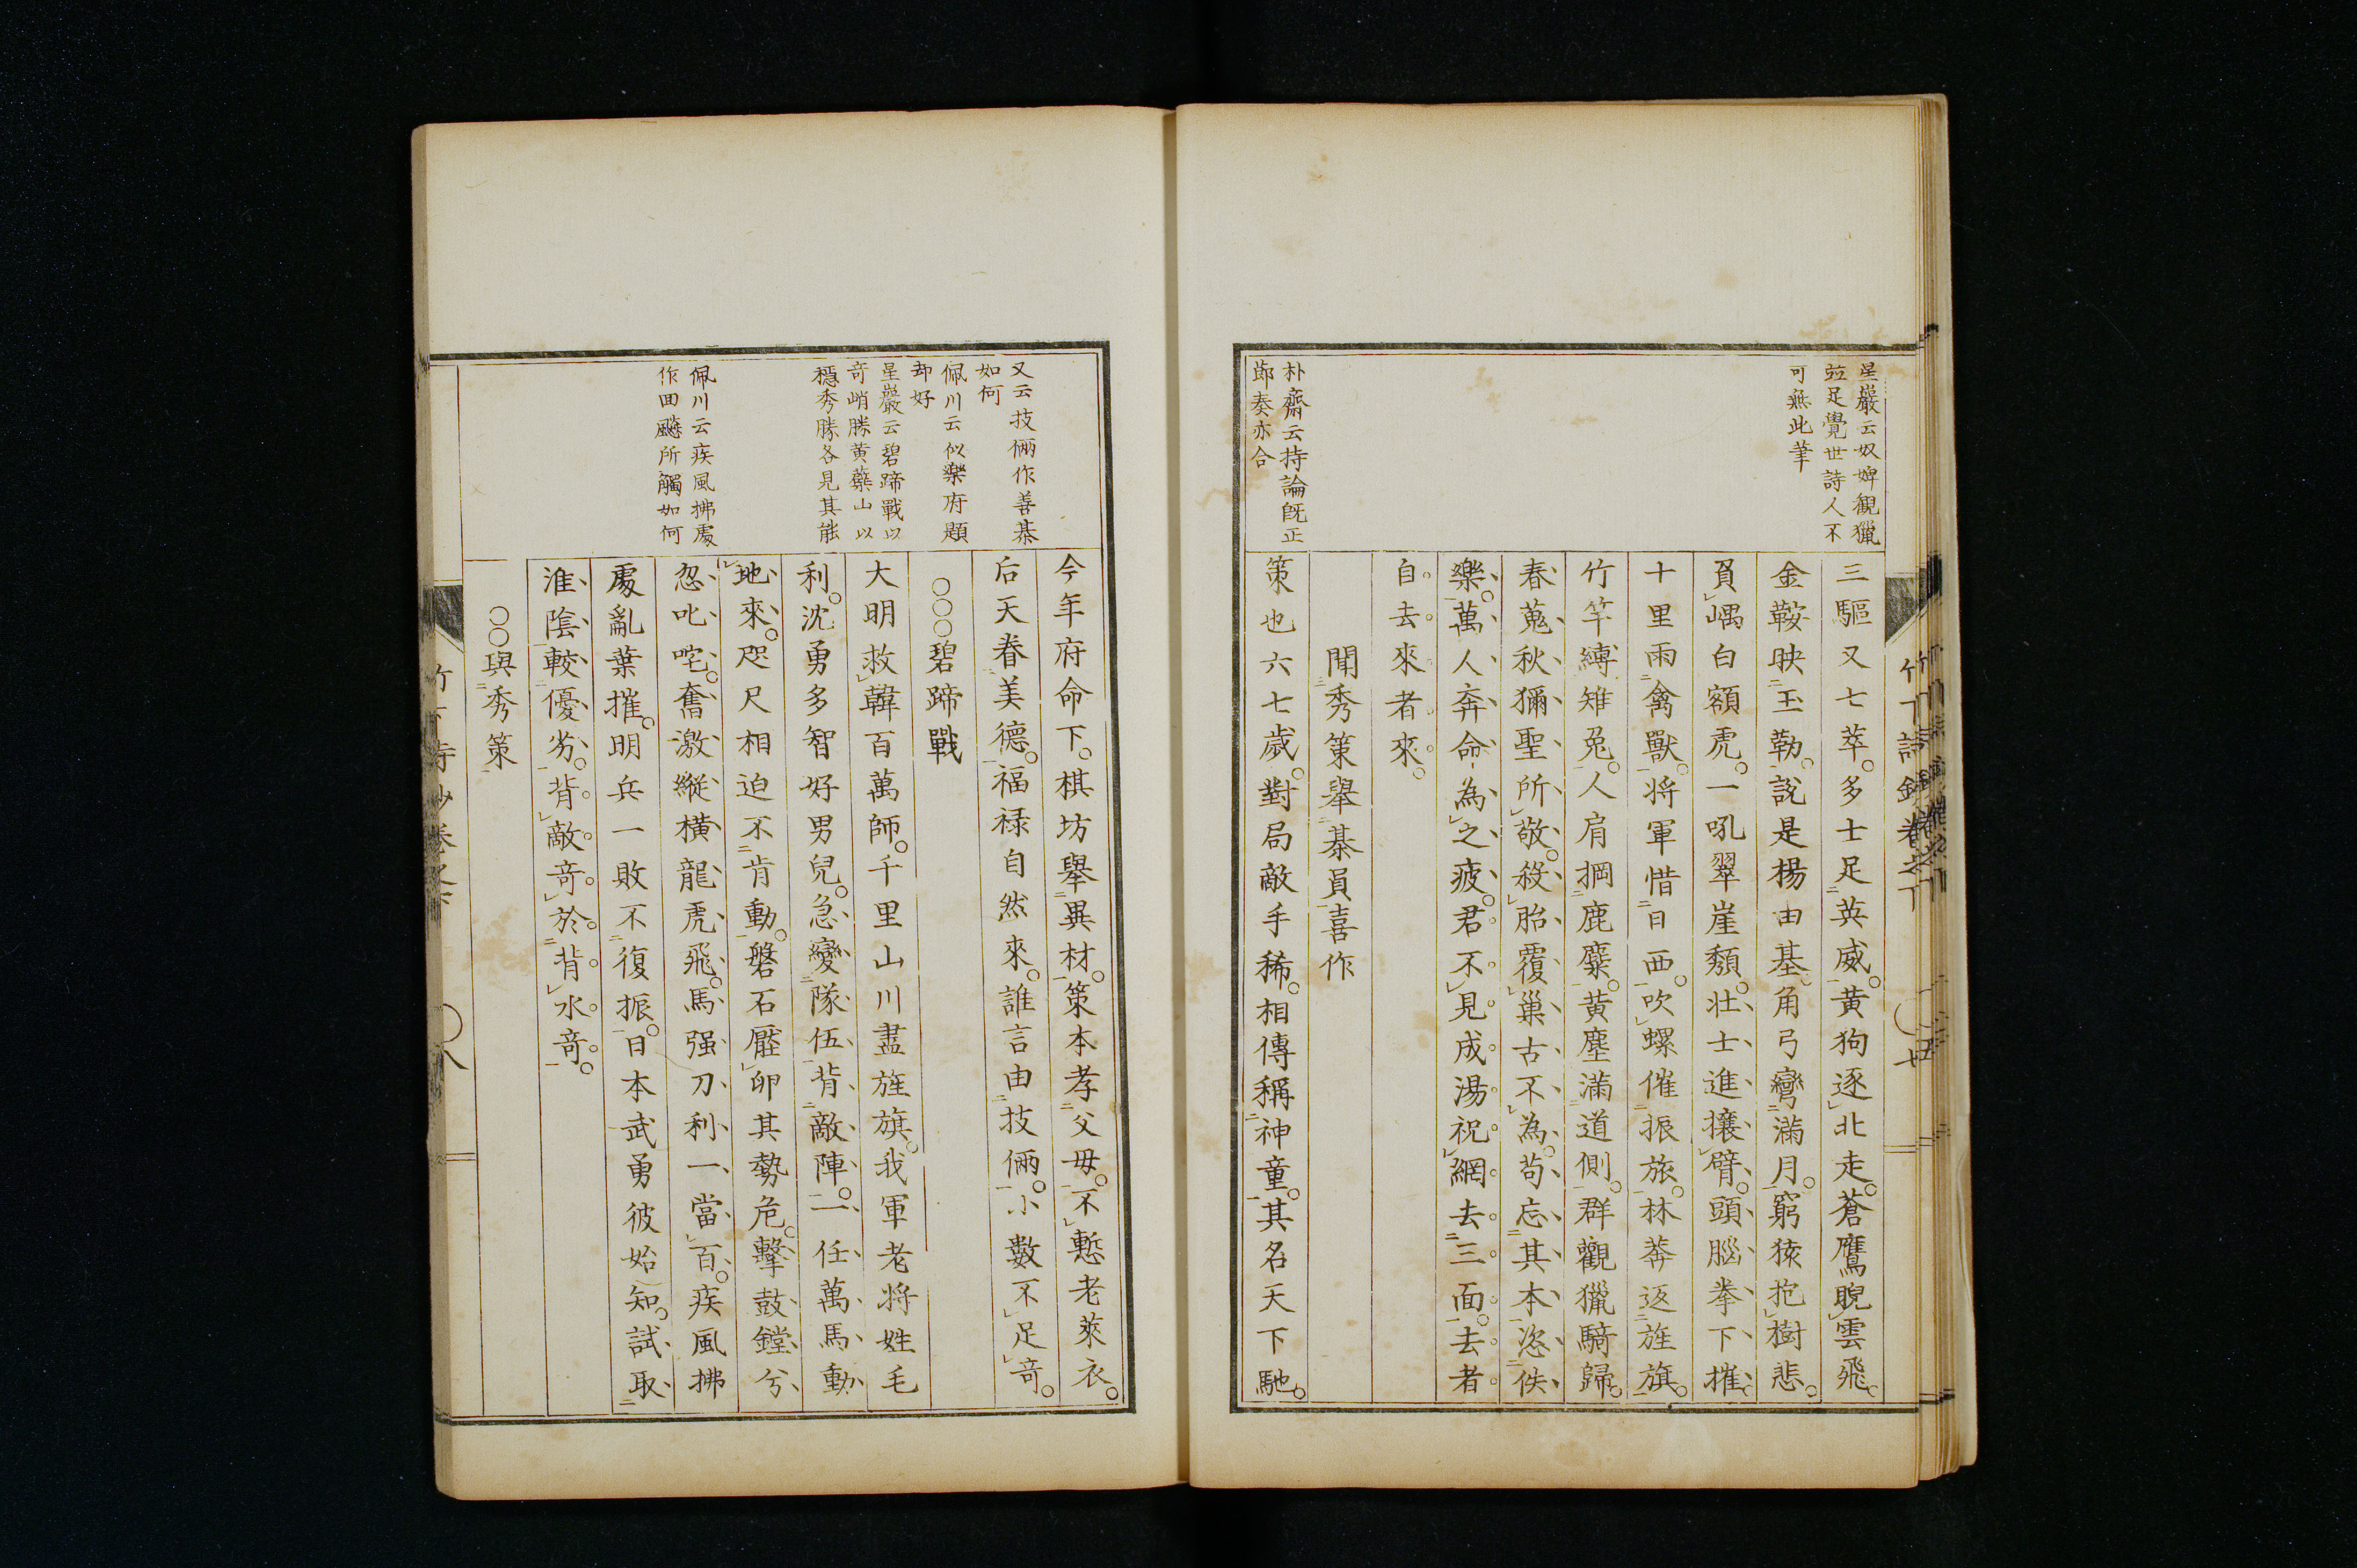 星巖云奴婢觀獵
竝足覺世詩人不
可無此筆
三驅又七萃。多士足英威。黃狗逐北走。蒼鷹睨雲飛。
金鞍映玉勒。說是楊由基。角弓彎滿月。窮猿抱樹悲。
負嵎白額虎。一吼翠崖頽。壯士進攘臂。頭腦拳下摧。
十里雨禽獸。将軍惜日西。吹螺催振旅。林莽返旌旗。
竹竿縛雉兎。人肩掆鹿麋。黃塵滿道側。群觀獵騎歸。
春蒐秋獮聖所敬。殺胎覆巢古不為。苟忘其本恣佚
樂。萬人奔命為之疲。君不見成湯祝網去三面。去者
自去來者來。
聞秀策舉棊員喜作
朴齋云持論既正
節奏亦合
策也六七歳。對局敵手稀。相傳稱神童。其名天下馳。
又云技倆作善棊
如何
佩川云似樂府題
却好
星巖云碧蹄戰以
奇峭勝黄蘗山以
穩秀勝各見其能
佩川云疾風拂處
作回飇所觸如何
今年府命下。棋坊舉異材。策本孝父毋。不慙老萊衣。
后天眷美德。福禄自然來。誰言由技倆。小數不足奇。
○○○碧蹄戰
大明救韓百萬師。千里山川盡旌旗。我軍老将姓毛
利。沈勇多智好男兒。急變隊伍背敵陣。一任萬馬動
地來。咫尺相迫不肯動。磐石壓卵其勢危。擊鼓鏜兮
忽叱咤。奮激縱橫龍虎飛。馬强刀利一當百。疾風拂
處亂葉摧。明兵一敗不復振。日本武勇彼始知。試取
淮陰較優劣。背敵奇於背水奇。
○○與秀策